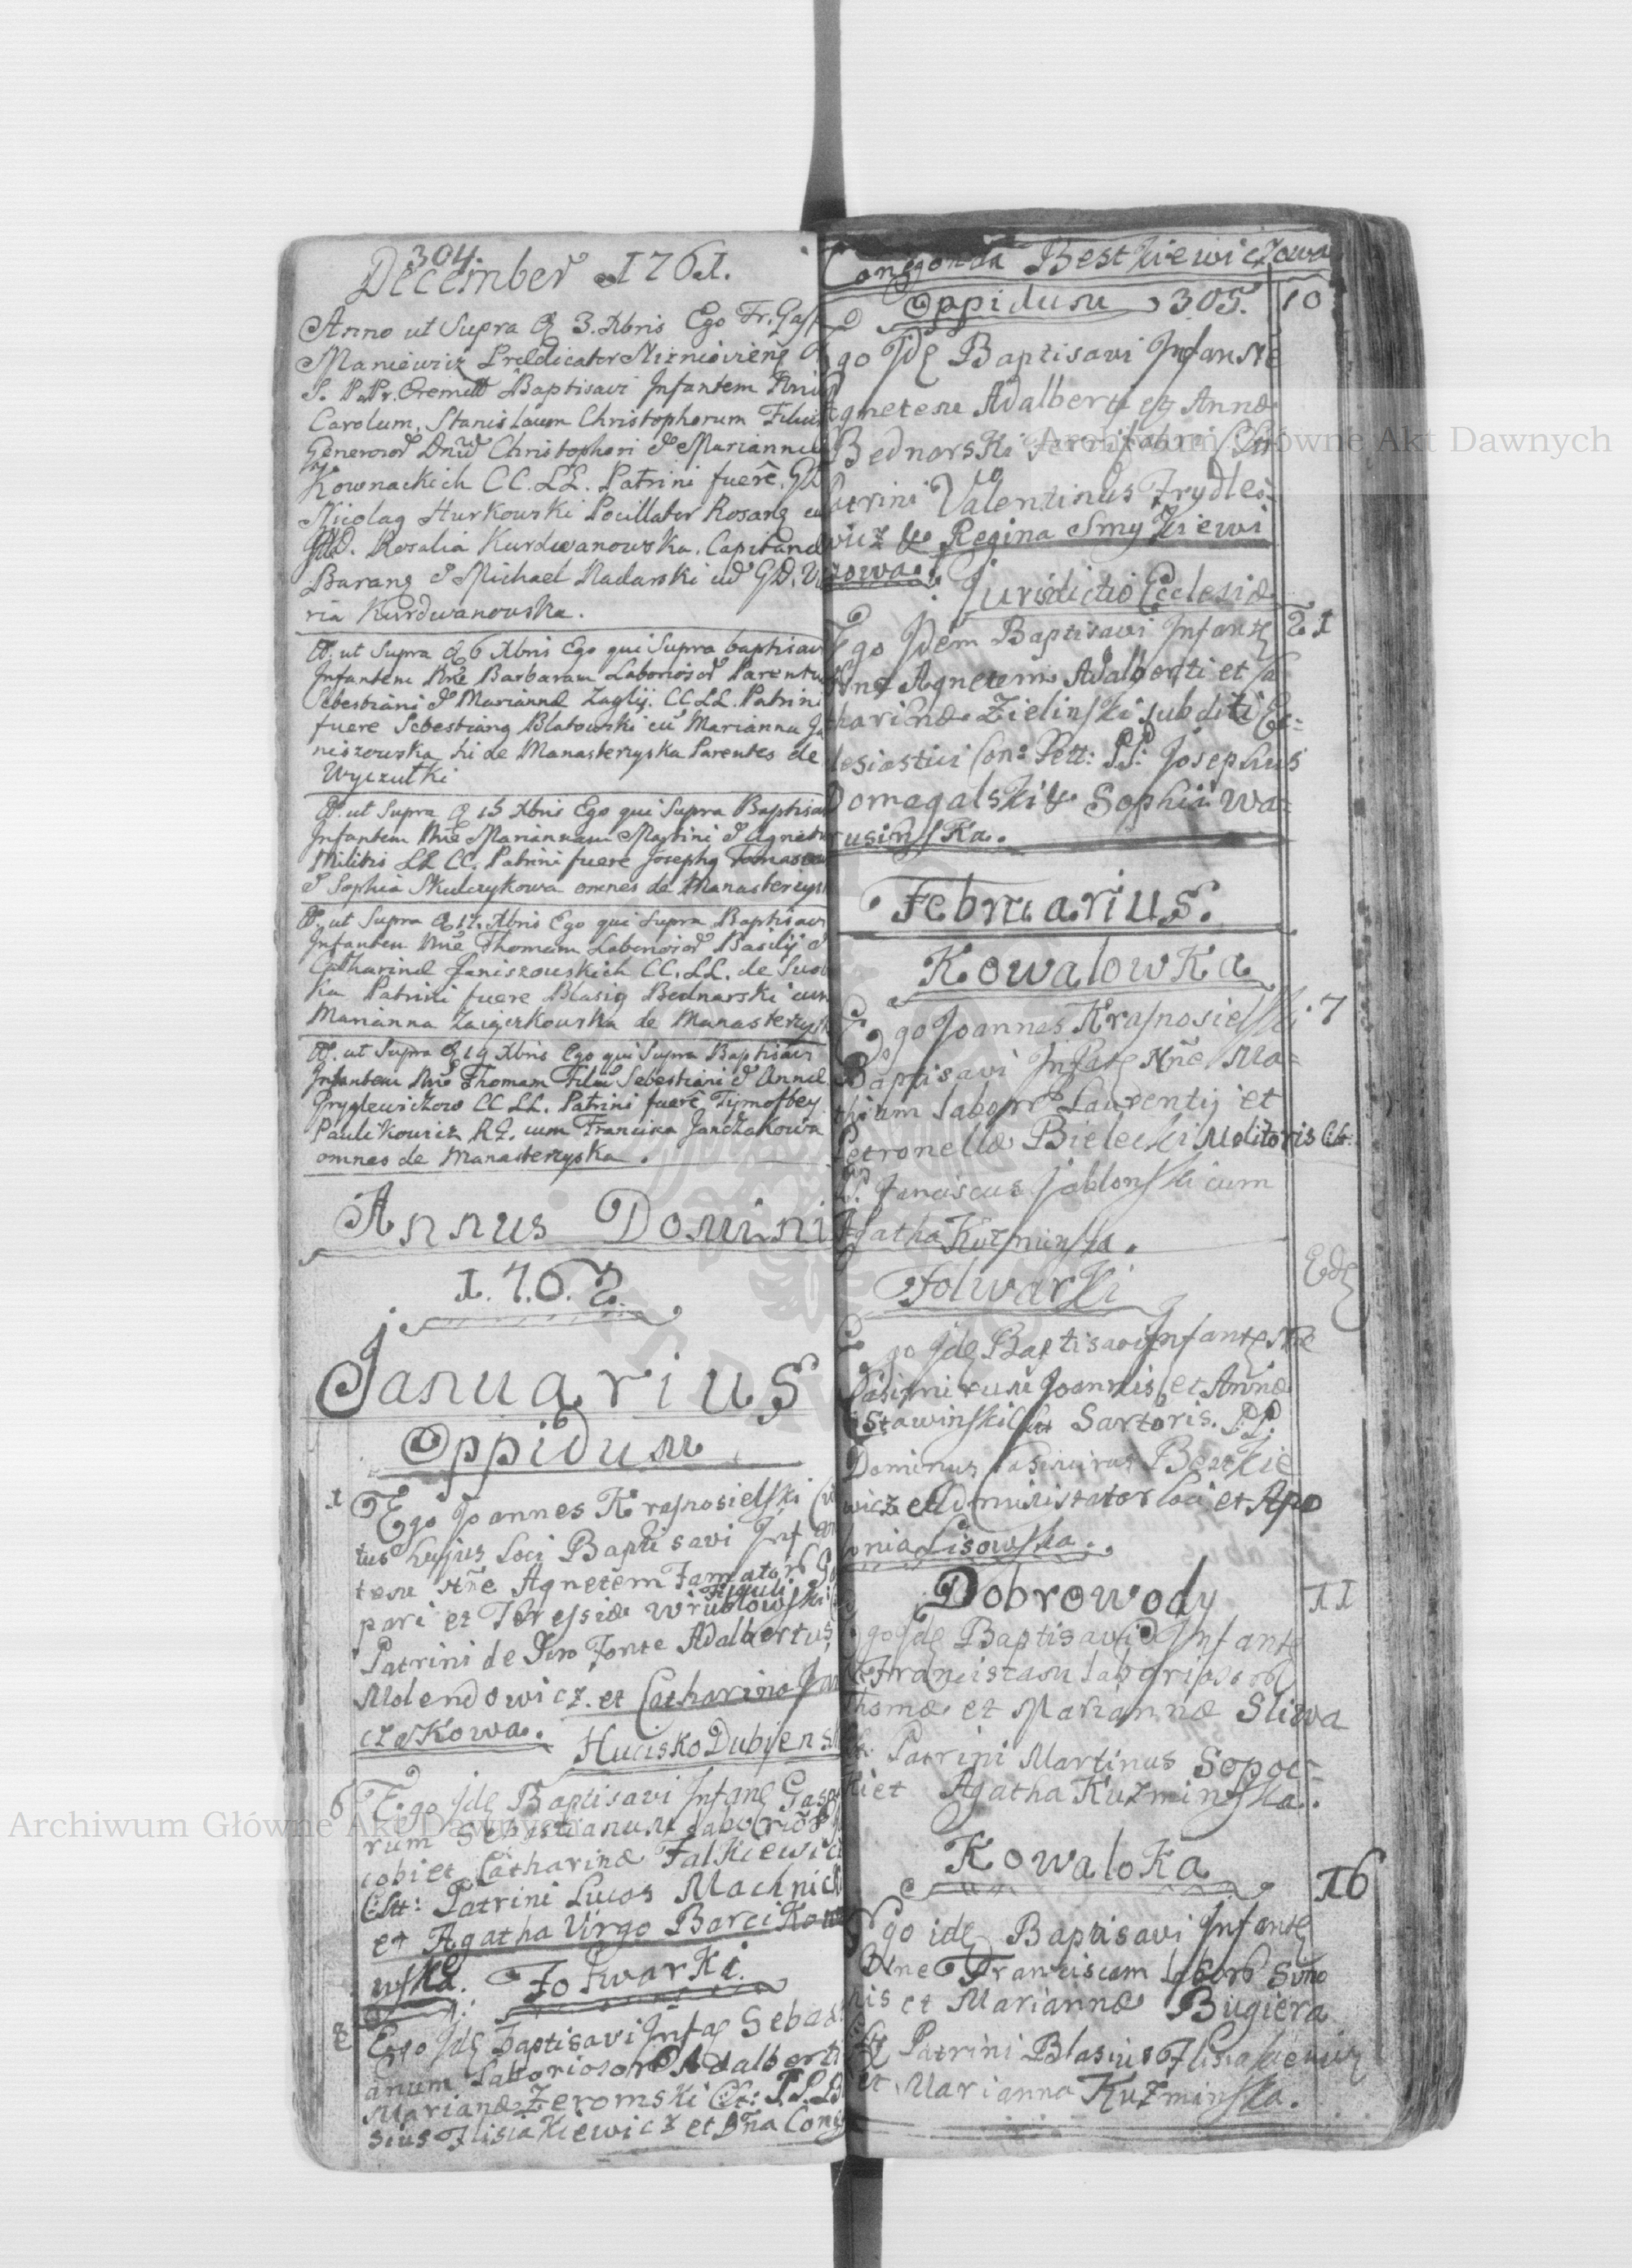 304.
December 1761.
Anno ut Supra d 3. Xbris Ego Fr. Gasp
Maniewicz Predicator Niznioviens
S. P. Pr. Eremitt Baptisavi Infantem
Carolum, Stanislaum Christophorum Filiu
Generosor Dnor Christophori & Marianna
Kownackich CC. LL. Patrini fuere, GD
Nicolag Hurkowski Pocillator Rosang cu
GD. Rosalia Kurdwanowska. Capitane
Barang & Michael Nadarski cu GD. V
ria Kurdwanowska.
A. ut Supra d 6 Xbris Ego qui Supra baptisav
Infantem Nne Barbaram Laboriosor Parentu
Sebestiani & Marianna Zaglij. CC LL. Patrini
fuere Sebestiang Blatowski cu Marianna Ja
niszowska hi de Manasterzyska Parentes de
Wyczulki
A. ut Supra d 15 Xbris Ego qui Supra Baptisa
Infantem Nne Mariannam Martini & Agnet
Militis LL CC. Patrini fuere Josephg Tomasze
& Sophia Skulczykowa omnes de Manasterzysk
A. ut Supra d 17. Xbris Ego qui Supra Baptisav
Infantem Nne Thomam Laboriosor Basilij &
Catharina Janiszowskich CC. LL. de
ka Patrini fuere Blasig Bednarski cum
Marianna Zaigczkowska de Manasterzysk
A. ut Supra d 19 Xbris Ego qui Supra Baptisavi
Infantem Nne Thomam Filiu Sebestiani & Anna
Pryglewiczow CC LL. Patrini fuere Tymofbey
Paulikowicz R. cum Franciska Janczakowa
omnes de Manasterzyska.
Annus Domini
1.7.6.2.
Januarius
Oppidum
1 Ego Joannes Krasnosielski
tus hujus Loci Baptisavi Infan
tem Nne Agnetem Famator
Figuli
pari et Theressiæ Wrublowski
Patrini de Sacro Fonte Adalbertus
Molendowicz. et Catharina Jan
czakowa.
Hucisko Dubiens
6 Ego Jdę Baptisavi Infanę Gaspa
rum Sebastianum Labor
cobi et Catharinæ Falkiewicz
CLtt: Patrini Lucas Machnick
et Agatha Virgo Barcikow
wska. Folwarki.
8 Ego Jdę Baptisavi Infaę Sebas
anum Laboriosor Adalberti
Marianæ Zeromski CLt: P.P. B
sius Flisiakiewicz et Dna Con
Conegonda Bestkiewiczowa
Oppidum 305. 10
Ego Jdę Baptisavi Infante
Agnetem Adalberti et Annæ
Bednarski
Patrini Valentinus Frydle
wicz & Regina Smyzkiewi
zowa.
Juridictio Ecclesiæ
Ego Jdem Baptisavi Infantę 21
Nne Agnetem Adalberti et Ca
tharinæ Zielinski subditi Ec=
lesiastici Con: Patt: PP: Josephus
Domagalski & Sophia Wa=
rusinska.
Februarius.
Kowalowka
Ego Joannes Krasnosielski 7
Baptisavi Infatę Nne Ma=
thiam Labor Laurentij et
Petronellæ Bielecki Molitoris CLt:
P. Franciscus Jablonski cum
Agatha Kuzminska.
Folwarki
Edę
Ego Jdę Baptisavi Infantę Nne
Casimirum Joannis et Annæ
Stawinski CLtt Sartoris. P.P.
Dominus Casimirus Bestkie
wicz Administrator Loci et Apo
lonia Lisowska.
Dobrowody 11
Ego Jdę Baptisavi Infantę
Franciscam Laborios
Thomæ et Mariannæ Sliwa
Patrini Martinus Sopoc=
ki et Agatha Kuzminska.
Kowaloka 16
Ego idę Baptisavi Infantę
Nne Franciscam Labor Simo
nis et Mariannæ Bugiera
Patrini Blasius Flisiakiewicz
et Marianna Kuzminska.
Archiwum Główne Akt Dawnych
Archiwum Główne Akt Dawnych